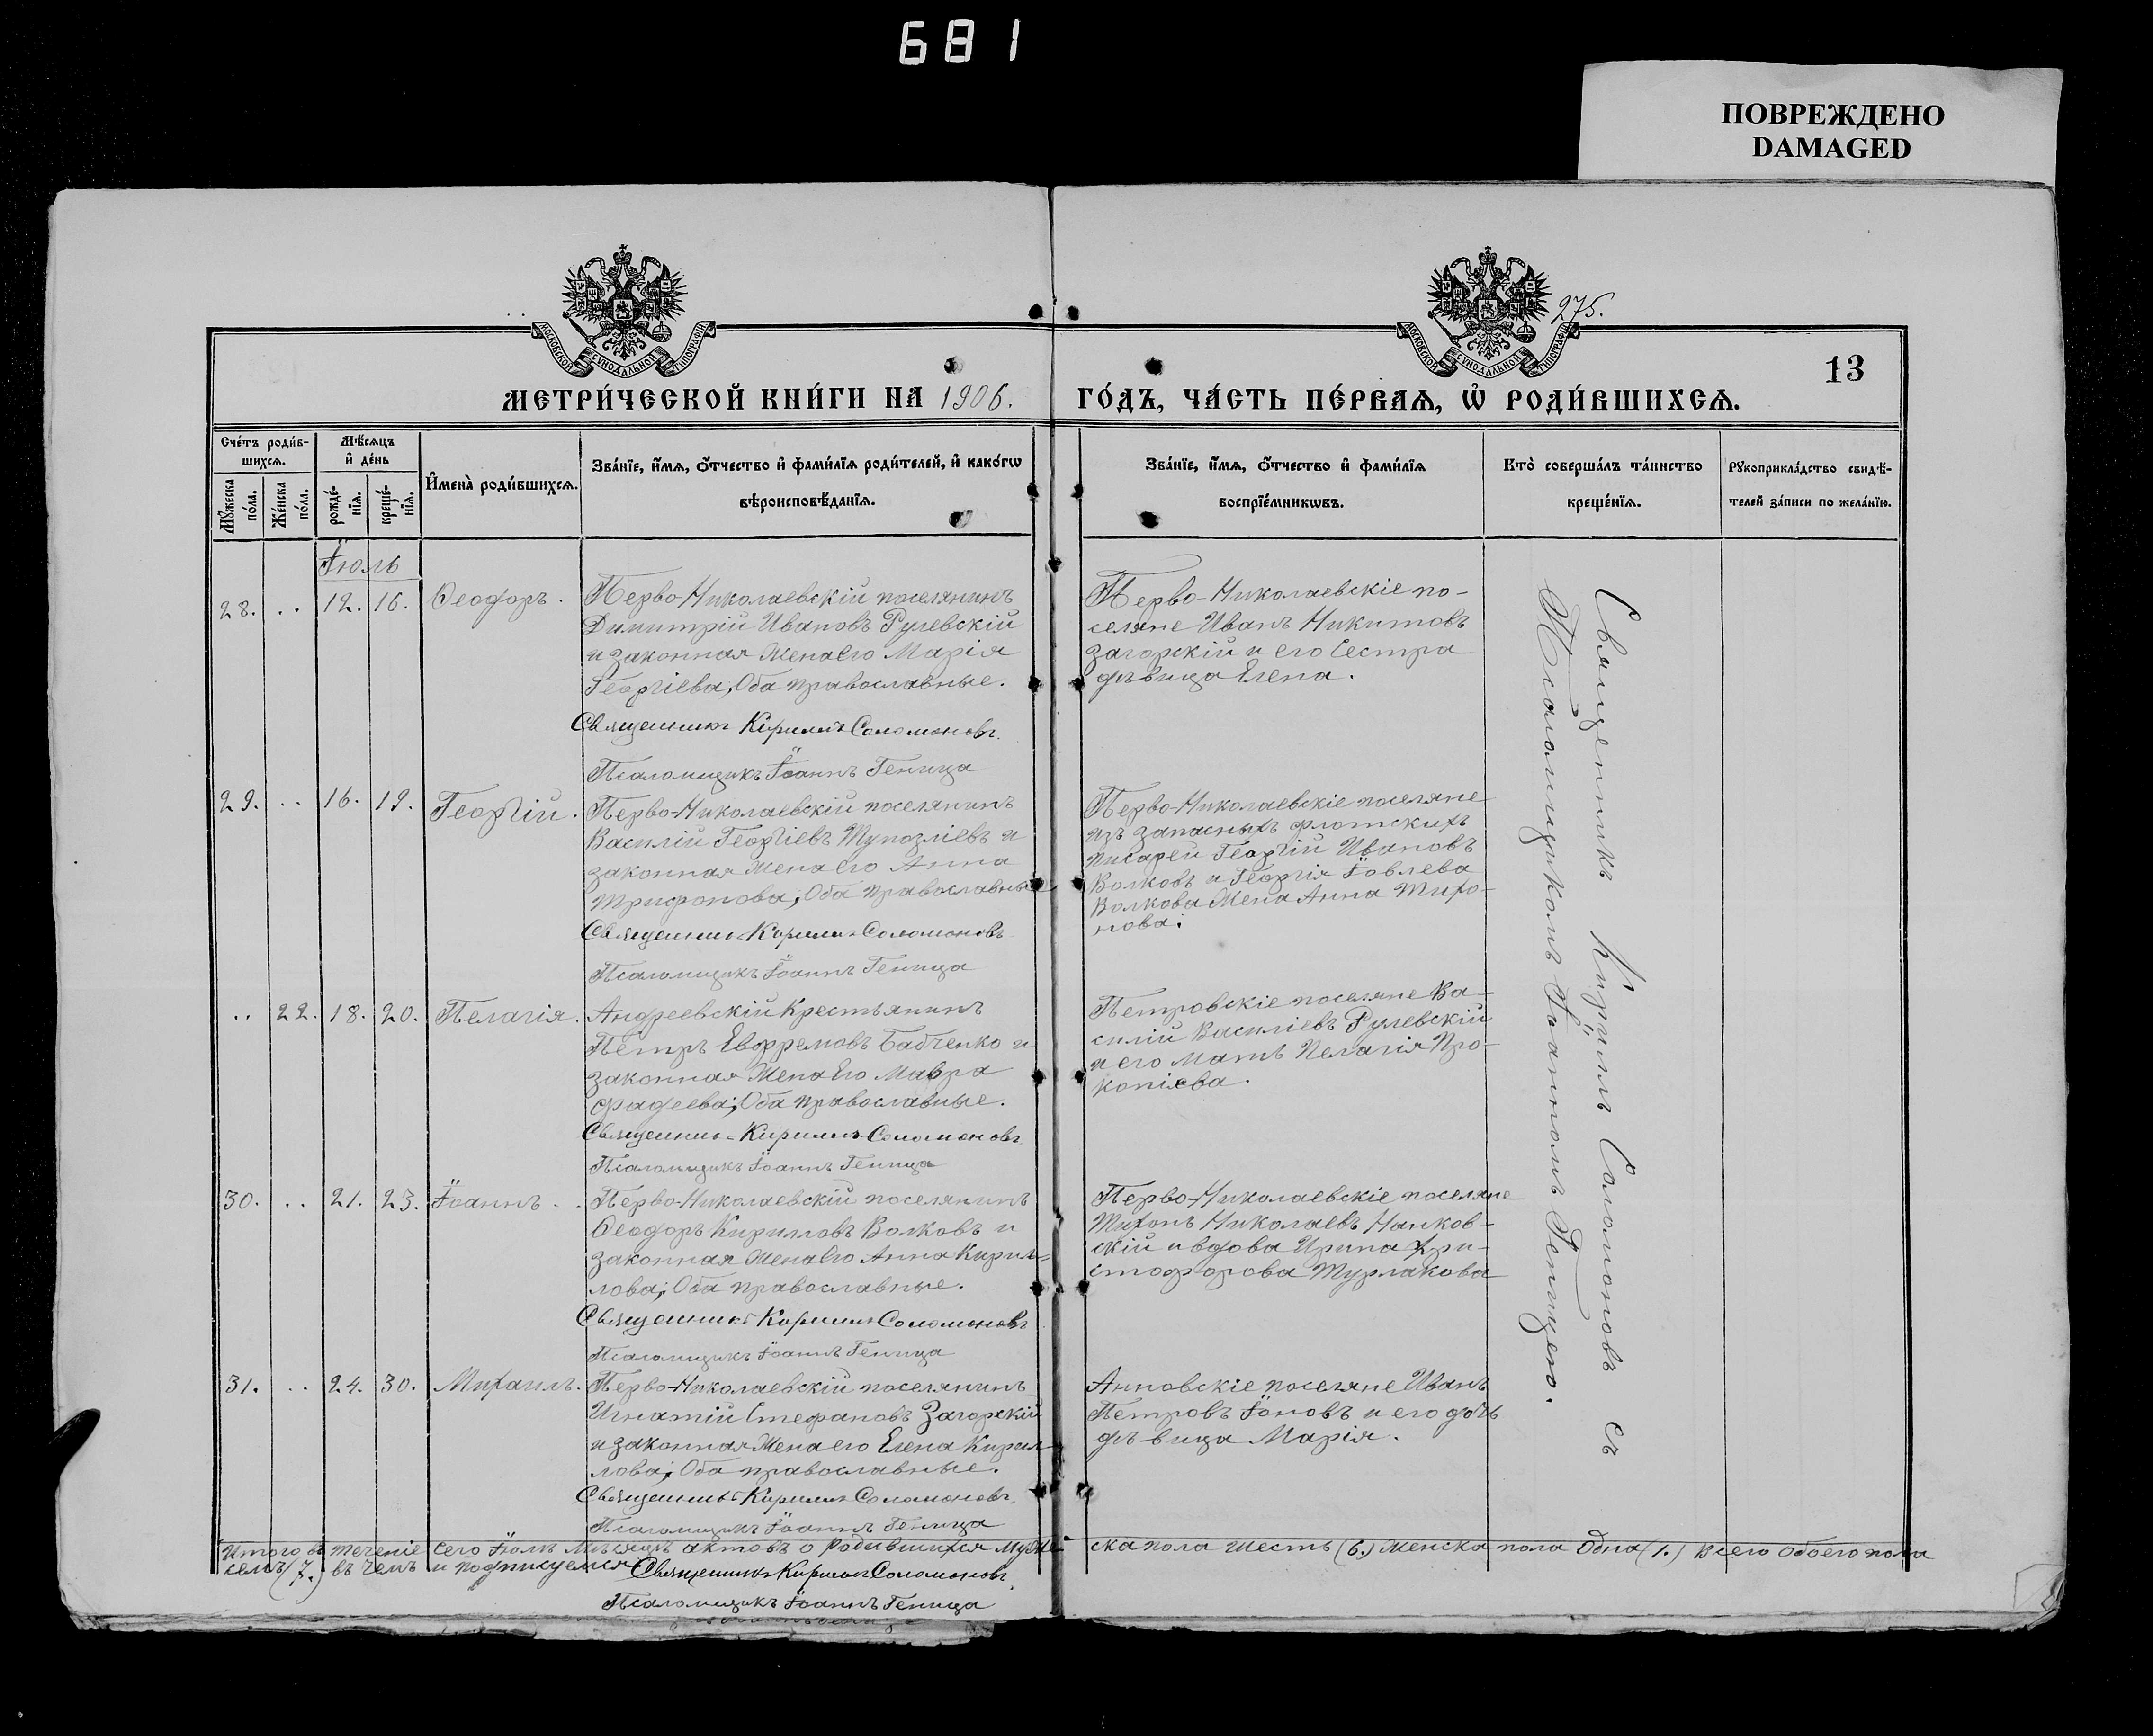 681
ПОВРЕЖДЕНО
DAMAGED
МОСКОВСКОЙ СѴНОДАЛЬНОЙ ТИПОГРАФІИ
МОСКОВСКОЙ СѴНОДАЛЬНОЙ ТИПОГРАФІИ
275.
13
МЕТРИ́ЧЕСКОЙ КНИ́ГИ НА 1906.
ГО́ДЪ, ЧА́СТЬ ПЕ́РВАЯ, Ѡ҆ РОДИ́ВШИХСѦ.
Сче́тъ роди́в-
шихсѧ.
Мѣ́сѧцъ
и҆ де́нь
И҆мена̀ роди́вшихсѧ.
Зва́нїе, и҆́мѧ, ѻ҆́тчество и҆ фами́лїѧ роди́телей, и҆ како́гѡ
вѣроисповѣ́данїѧ.
Мꙋ́жеска
по́ла.
Же́нска
по́ла.
рожде́-
нїѧ.
креще́-
нїѧ.
Зва́нїе, и҆́мѧ, ѻ҆́тчество и҆ фами́лїѧ
воспрїе́мникѡвъ.
Кто̀ соверша́лъ та́инство
креще́нїѧ.
Рꙋкоприкла́дство свидѣ́-
телей за́писи по жела́нїю.
Іюль
28. .. 12. 16. Ѳеодоръ.
Перво-Николаевскій поселянинъ
Димитрій Ивановъ Рулевскій
и законная жена его Марія
Георгіева, Оба православные.
Священникъ Кириллъ Соломоновъ.
Псаломщикъ Іоаннъ Геница
Перво-Николаевскіе по-
селяне Иванъ Никитовъ
Загорскій и его Сестра
дѣвица Елена.
29. .. 16. 19. Георгій.
Перво-Николаевскій поселянинъ
Василій Георгіевъ Тупозліевъ и
законная жена его Анна
Трифонова, Оба православные
Священникъ Кириллъ Соломоновъ
Псаломщикъ Іоаннъ Геница
Перво-Николаевскіе поселяне
изъ запасныхъ флотскихъ
писарей Георгій Ивановъ
Волковъ и Георгія Іовлева
Волкова жена Анна Тихо-
нова.
.. 22. 18. 20. Пелагія.
Андреевскій Крестьянинъ
Петръ Евфремовъ Бабченко и
законная жена его Мавра
Фадеева; Оба православные.
Священникъ Кириллъ Соломоновъ
Псаломщикъ Іоаннъ Геница
Петровскіе поселяне Ва-
силій Василіевъ Рулевскій
и его мать Пелагія Про-
копіева.
30. .. 21. 23. Іоаннъ.
Перво-Николаевскій поселянинъ
Ѳеодоръ Кирилловъ Волковъ и
законная жена его Анна Кирил-
лова; Оба православные.
Священникъ Кириллъ Соломоновъ
Псаломщикъ Іоаннъ Геница
Перво-Николаевскіе поселяне
Тихонъ Николаевъ Нанков-
скій и вдова Ирина Хри-
стофорова Турлакова
31. .. 24. 30. Михаилъ.
Перво-Николаевскій поселянинъ
Игнатій Стефановъ Загорскій
и законная жена его Елена Кирил-
лова; Оба православные.
Священникъ Кириллъ Соломоновъ.
Псаломщикъ Іоаннъ Геница
Анновскіе поселяне Иванъ
Петровъ Іоновъ и его дочь
дѣвица Марія.
Священникъ Кириллъ Соломоновъ съ
Псаломщикомъ Іоанномъ Геницею.
Итого въ теченіе сего Іюль Мѣсяцъ актовъ о родившихся муже-
ска пола Шесть (6.) женска пола Одна (1.) Всего Обоего пола
семь (7.) въ чемъ и подписуемся Священникъ Кириллъ Соломоновъ.
Псаломщикъ Іоаннъ Геница